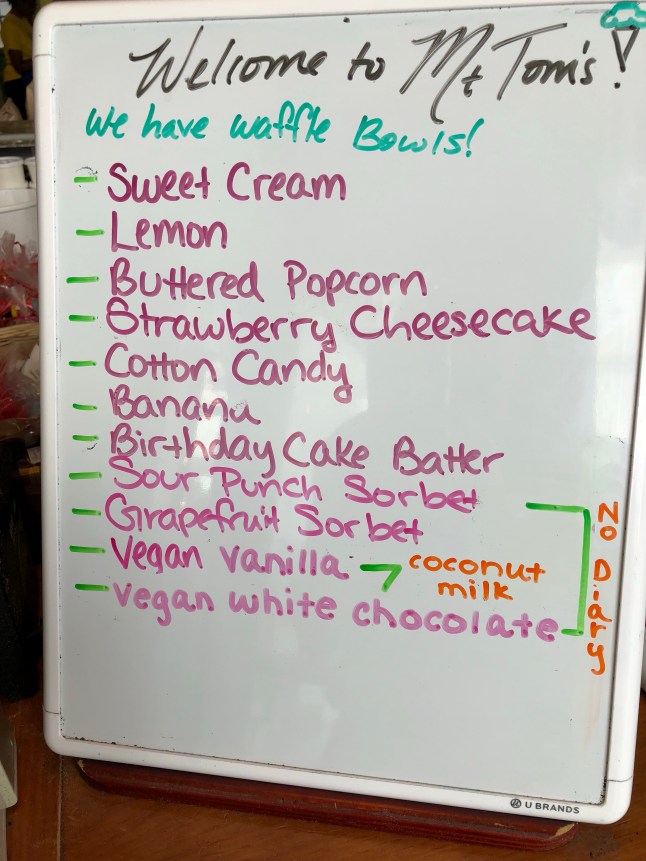 Welcome to Mt Tom's!
We have waffle Bowls!
- Sweet Cream
- Lemon
- Buttered Popcorn
- Strawberry Cheesecake
- Cotton Candy
- Banana
- Birthday Cake Batter
- Sour Punch Sorbet
- Grapefruit Sorbet
- Vegan vanilla
- Vegan white chocolate
coconut
milk
No Diary
U BRANDS